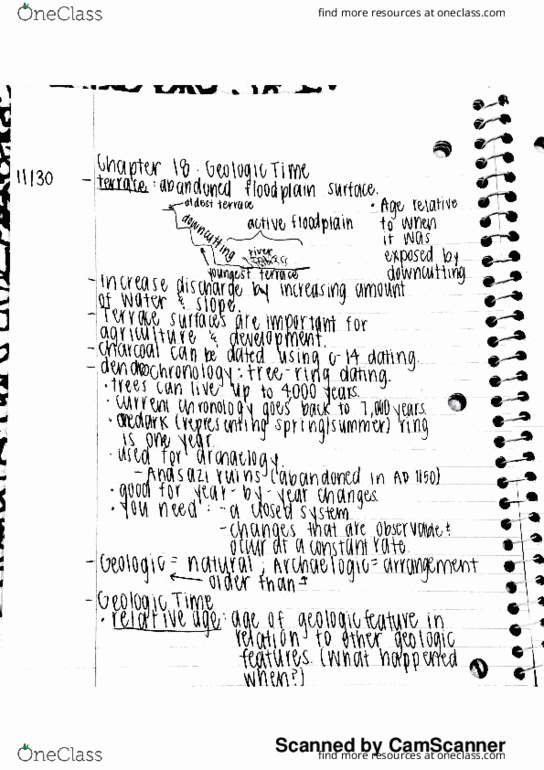 OneClass
find more resources at oneclass.com
Chapter 18: Geologic Time
11/30 - terrace: abandoned floodplain surface.
oldest terrace
downcutting
active floodplain
river
youngest terrace
• Age relative
to when
it was
exposed by
downcutting
- Increase discharge by increasing amount
of water & slope.
- Terrace surfaces are important for
agriculture & development.
- charcoal can be dated using C-14 dating.
- dendrochronology: tree-ring dating.
• trees can live up to 4000 years.
• current chronology goes back to 7,000 years.
• one dark (representing spring/summer) ring
is one year.
• used for archaelogy.
- Anasazi ruins (abandoned in AD 1150)
• good for year-by-year changes.
• You need: - a closed system
- changes that are observable &
occur at a constant rate.
- Geologic = natural, Archaelogic = arrangement
← older than →
- Geologic Time
• relative age: age of geologic feature in
relation to other geologic
features. (What happened
when?)
Scanned by CamScanner
OneClass
find more resources at oneclass.com